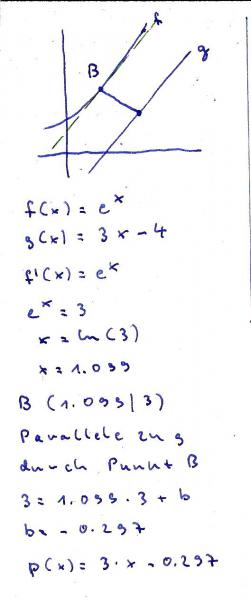 f
g
B
f(x) = e^x
g(x) = 3x - 4
f'(x) = e^x
e^x = 3
x = ln(3)
x = 1.099
B (1.099 | 3)
Parallele zu g
durch Punkt B
3 = 1.099 · 3 + b
b = - 0.297
p(x) = 3 · x - 0.297